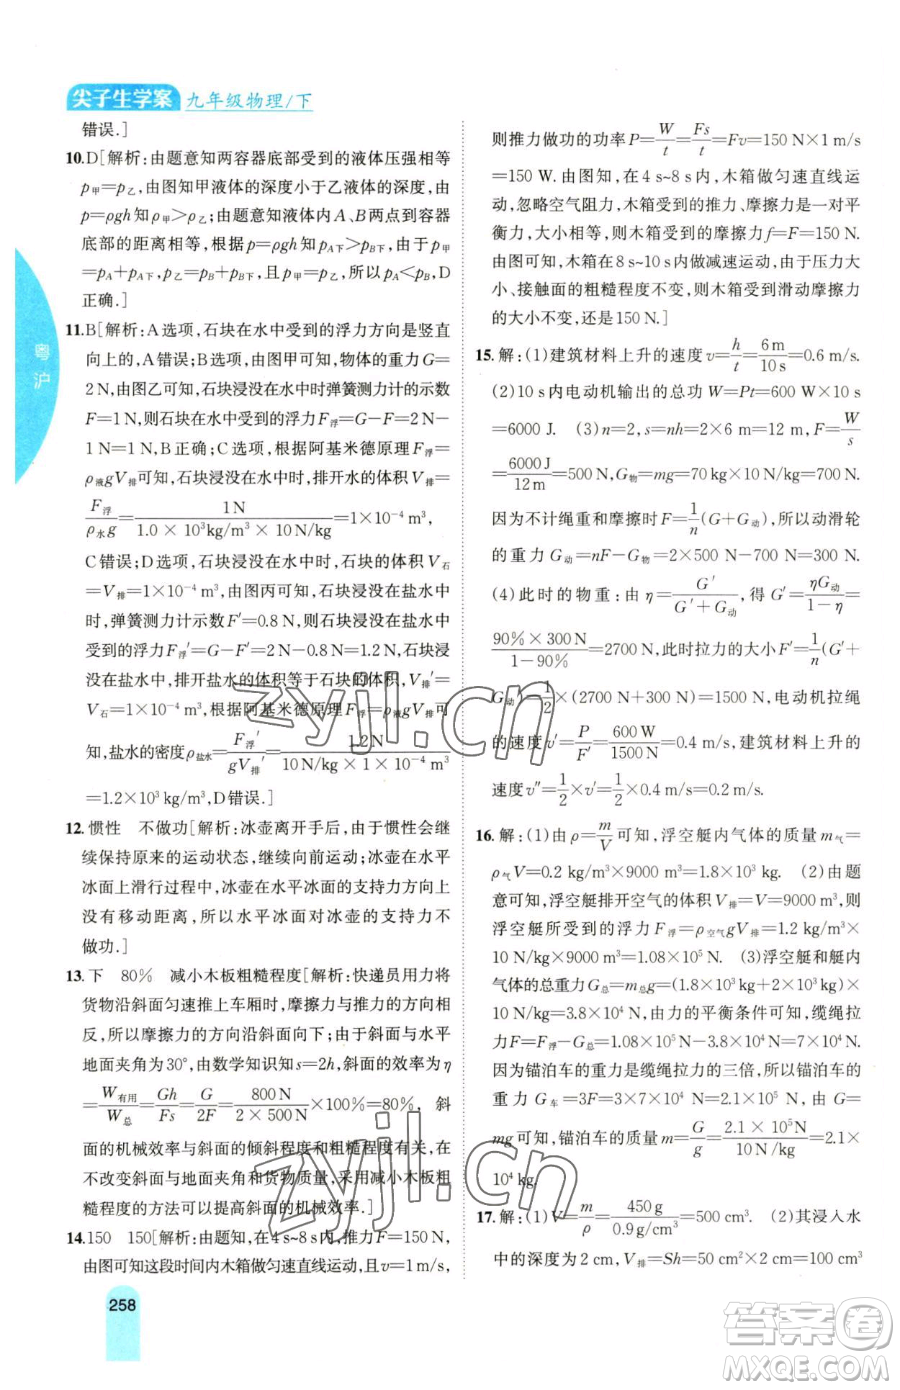 尖子生学案 九年级物理/下
错误.]
10.D[解析:由题意知两容器底部受到的液体压强相等
p甲=p乙,由图知甲液体的深度小于乙液体的深度,由
p=ρgh知ρ甲>ρ乙;由题意知液体内A、B两点到容器
底部的距离相等,根据p=ρgh知pA下>pB下,由于p甲
=pA+pA下,p乙=pB+pB下,且p甲=p乙,所以pA<pB,D
正确.]
11.B[解析:A选项,石块在水中受到的浮力方向是竖直
向上的,A错误;B选项,由图甲可知,物体的重力G=
2N,由图乙可知,石块浸没在水中时弹簧测力计的示数
F=1N,则石块浸没在水中受到的浮力F浮=G-F=2N-
1N=1N,B正确;C选项,根据阿基米德原理F浮=
ρ液gV排可知,石块浸没在水中时,排开水的体积V排=
F浮/ρ水g=1N/(1.0×10³kg/m³×10N/kg)=1×10⁻⁴m³,
C错误;D选项,石块浸没在水中时,石块的体积V石
=V排=1×10⁻⁴m³,由图丙可知,石块浸没在盐水中
时,弹簧测力计示数F′=0.8N,则石块浸没在盐水中
时受到的浮力F浮′=G-F′=2N-0.8N=1.2N,石块
浸没在盐水中时,排开盐水的体积等于石块的体积,V排′=
V石=1×10⁻⁴m³,根据阿基米德原理F浮=ρ液gV排可
知,盐水的密度ρ盐水=F浮′/gV排′=1.2N/(10N/kg×1×10⁻⁴m³)
=1.2×10³kg/m³,D错误.]
12.惯性 不做功[解析:冰壶离开手后,由于惯性会继
续保持原来的运动状态,继续向前运动;冰壶在水平
冰面上滑行过程中,冰壶在水平冰面的支持力方向上
没有移动距离,所以水平冰面对冰壶的支持力
不做功.]
13.下 80% 减小木板粗糙程度[解析:快递员用力将
货物沿斜面匀速推上车厢时,摩擦力与推力的方向相
反,所以摩擦力的方向沿斜面向下;由于斜面与水平
地面夹角为30°,由数学知识知s=2h,斜面的效率为η
=W有用/W总=Gh/Fs=G/2F=800N/(2×500N)×100%=80%,斜
面的机械效率与斜面的倾斜程度和粗糙程度有关,在
不改变斜面与地面夹角和货物质量,采用减小木板粗
糙程度的方法可以提高斜面的机械效率.]
14.150 150[解析:由题知,在4s~8s内,推力F=150N,
由图可知这段时间内木箱做匀速直线运动,且v=1m/s,
则推力做功的功率P=W/t=Fs/t=Fv=150N×1m/s
=150W.由图知,在4s~8s内,木箱做匀速直线运
动,忽略空气阻力,木箱受到的推力、摩擦力是一对平
衡力,大小相等,所以木箱受到的摩擦力f=F=150N.
由图知,木箱在8s~10s内做减速运动,由于压力大
小、接触面的粗糙程度不变,木箱受到的滑动摩擦力
的大小不变,还是150N.]
15.解:(1)建筑材料上升的速度v=h/t=6m/10s=0.6m/s.
(2)10s内电动机输出的总功W=Pt=600W×10s
=6000J. (3)n=2,s=nh=2×6m=12m,F=W/s
=6000J/12m=500N,G物=mg=70kg×10N/kg=700N.
因为不计绳重和摩擦时F=1/n(G+G动),所以动滑轮
的重力G动=nF-G物=2×500N-700N=300N.
(4)此时的物重:由η=G′/(G′+G动),得G′=ηG动/(1-η)=
90%×300N/(1-90%)=2700N,此时拉力的大小F′=1/n(G′+
G动)=1/2×(2700N+300N)=1500N,电动机拉绳
的速度v′=P/F′=600W/1500N=0.4m/s,建筑材料上升的
速度v″=1/2×v′=1/2×0.4m/s=0.2m/s.
16.解:(1)由ρ=m/V可知,浮空艇内气体的质量m气=
ρ气V=0.2kg/m³×9000m³=1.8×10³kg. (2)由题
意可知,浮空艇排开空气的体积V排=V=9000m³,则
浮空艇所受到的浮力F浮=ρ空气gV排=1.2kg/
m³×10N/kg×9000m³=1.08×10⁵N. (3)浮空艇和艇内
气体的总重力G总=m总g=(1.8×10³kg+2×10³kg)×10
N/kg=3.8×10⁴N,由力的平衡条件可知,缆绳拉
力F=F浮-G总=1.08×10⁵N-3.8×10⁴N=7×10⁴N.
因为锚泊车的重力为缆绳拉力的三倍,所以锚泊车的
重力G车=3F=3×7×10⁴N=2.1×10⁵N,由G=
mg可知,锚泊车的质量m=G/g=2.1×10⁵N/10N/kg=2.1×
10⁴kg.
17.解:(1)V=m/ρ=450g/0.9g/cm³=500cm³. (2)其浸入水
中的深度为2cm,V排=Sh=50cm²×2cm=100cm³
258
粤沪
zyjl.cn
zyjl.cn
答案
MXQE.COM